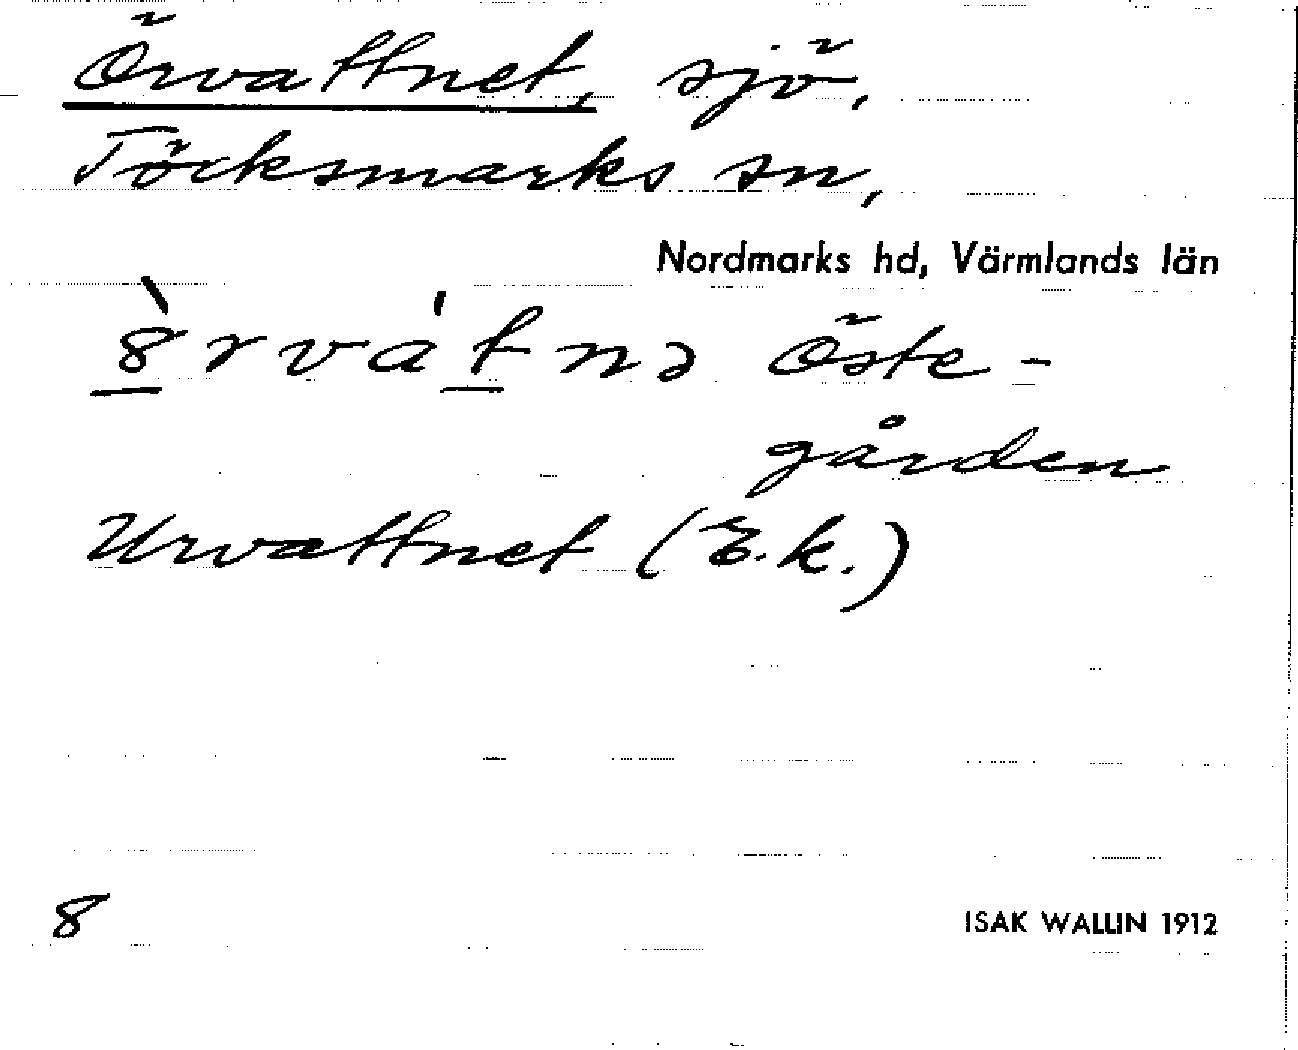 Örvattnet, sjö,
Töcksmarks sn,
Nordmarks hd, Värmlands län
8̀rvát̠nə Öste-
gården
Urvattnet (E.k.)
8
ISAK WALLIN 1912